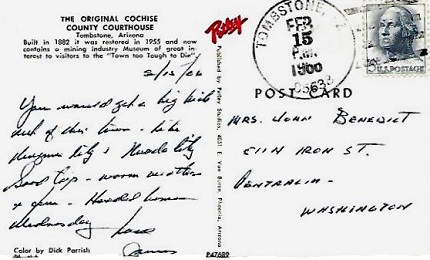 THE ORIGINAL COCHISE
COUNTY COURTHOUSE
Tombstone, Arizona
Built in 1882 it was restored in 1955 and now
contains a mining industry Museum of great in-
terest to visitors to the "Town too Tough to Die"
2/15/66
You would get a big kick
out of this town - like
Virginia City & Nevada City
Good trip - warm weather
& fun - Headed home
Wednesday Love
Color by Dick Parrish
Petley
Published by Petley Studios, 4051 E. Van Buren, Phoenix, Arizona
P47689
TOMBSTONE,
FEB
15
P.M.
5¢ U.S. POSTAGE
POST CARD
MRS. JOHN BENEDICT
IRON ST.
CENTRALIA -
WASHINGTON